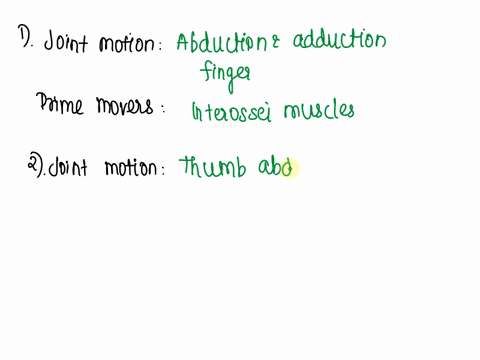 1). Joint motion: Abduction & adduction
finger
Prime movers: Interossei muscles
2). Joint motion: Thumb abd